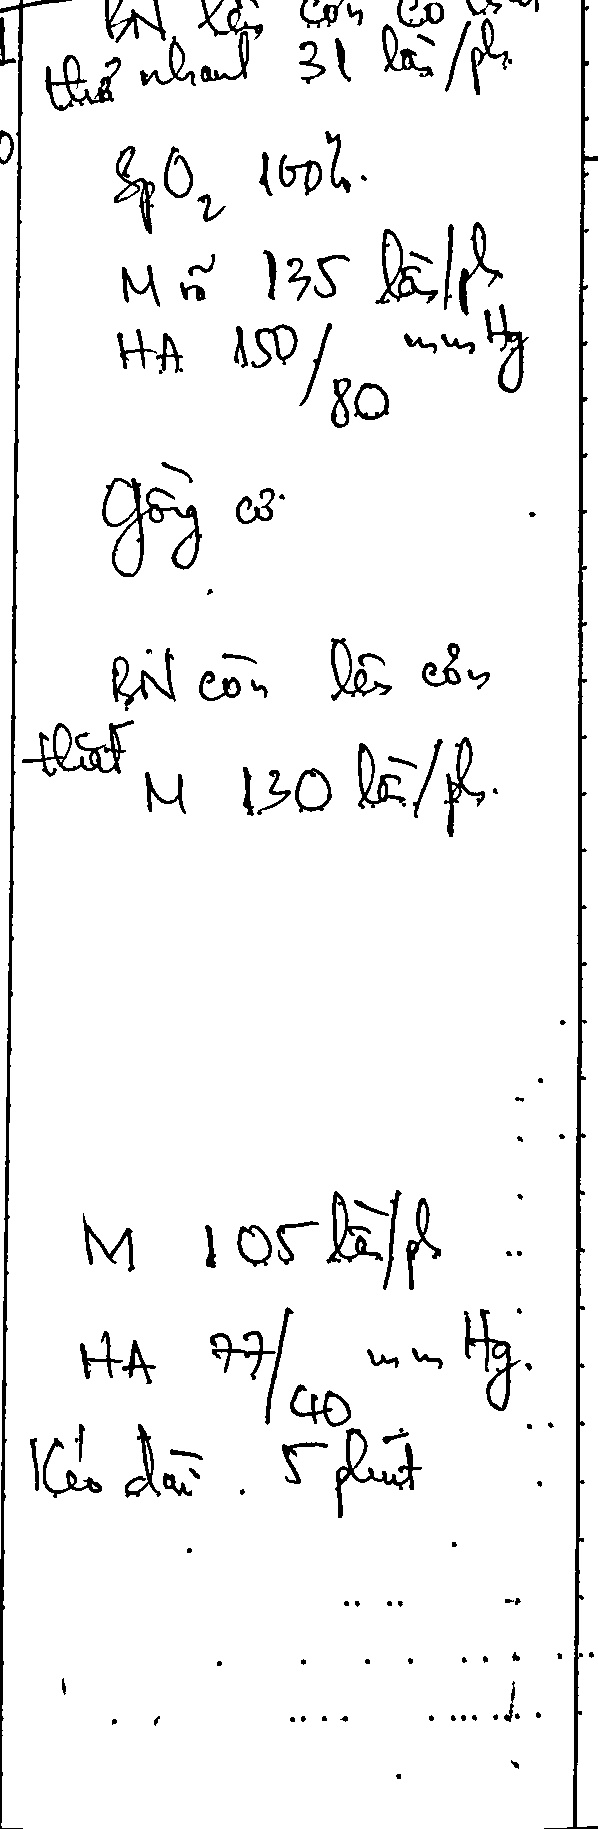 BN lên cơn co
thở nhanh 31 lần/ph.
SpO2 100%.
M rõ 135 lần/ph
HA 150/80 mmHg
Gồng cơ
BN còn lên cơn
thắt
M 130 lần/ph.
M 105 lần/ph
HA 77/40 mmHg.
Kéo dài. 5 phút